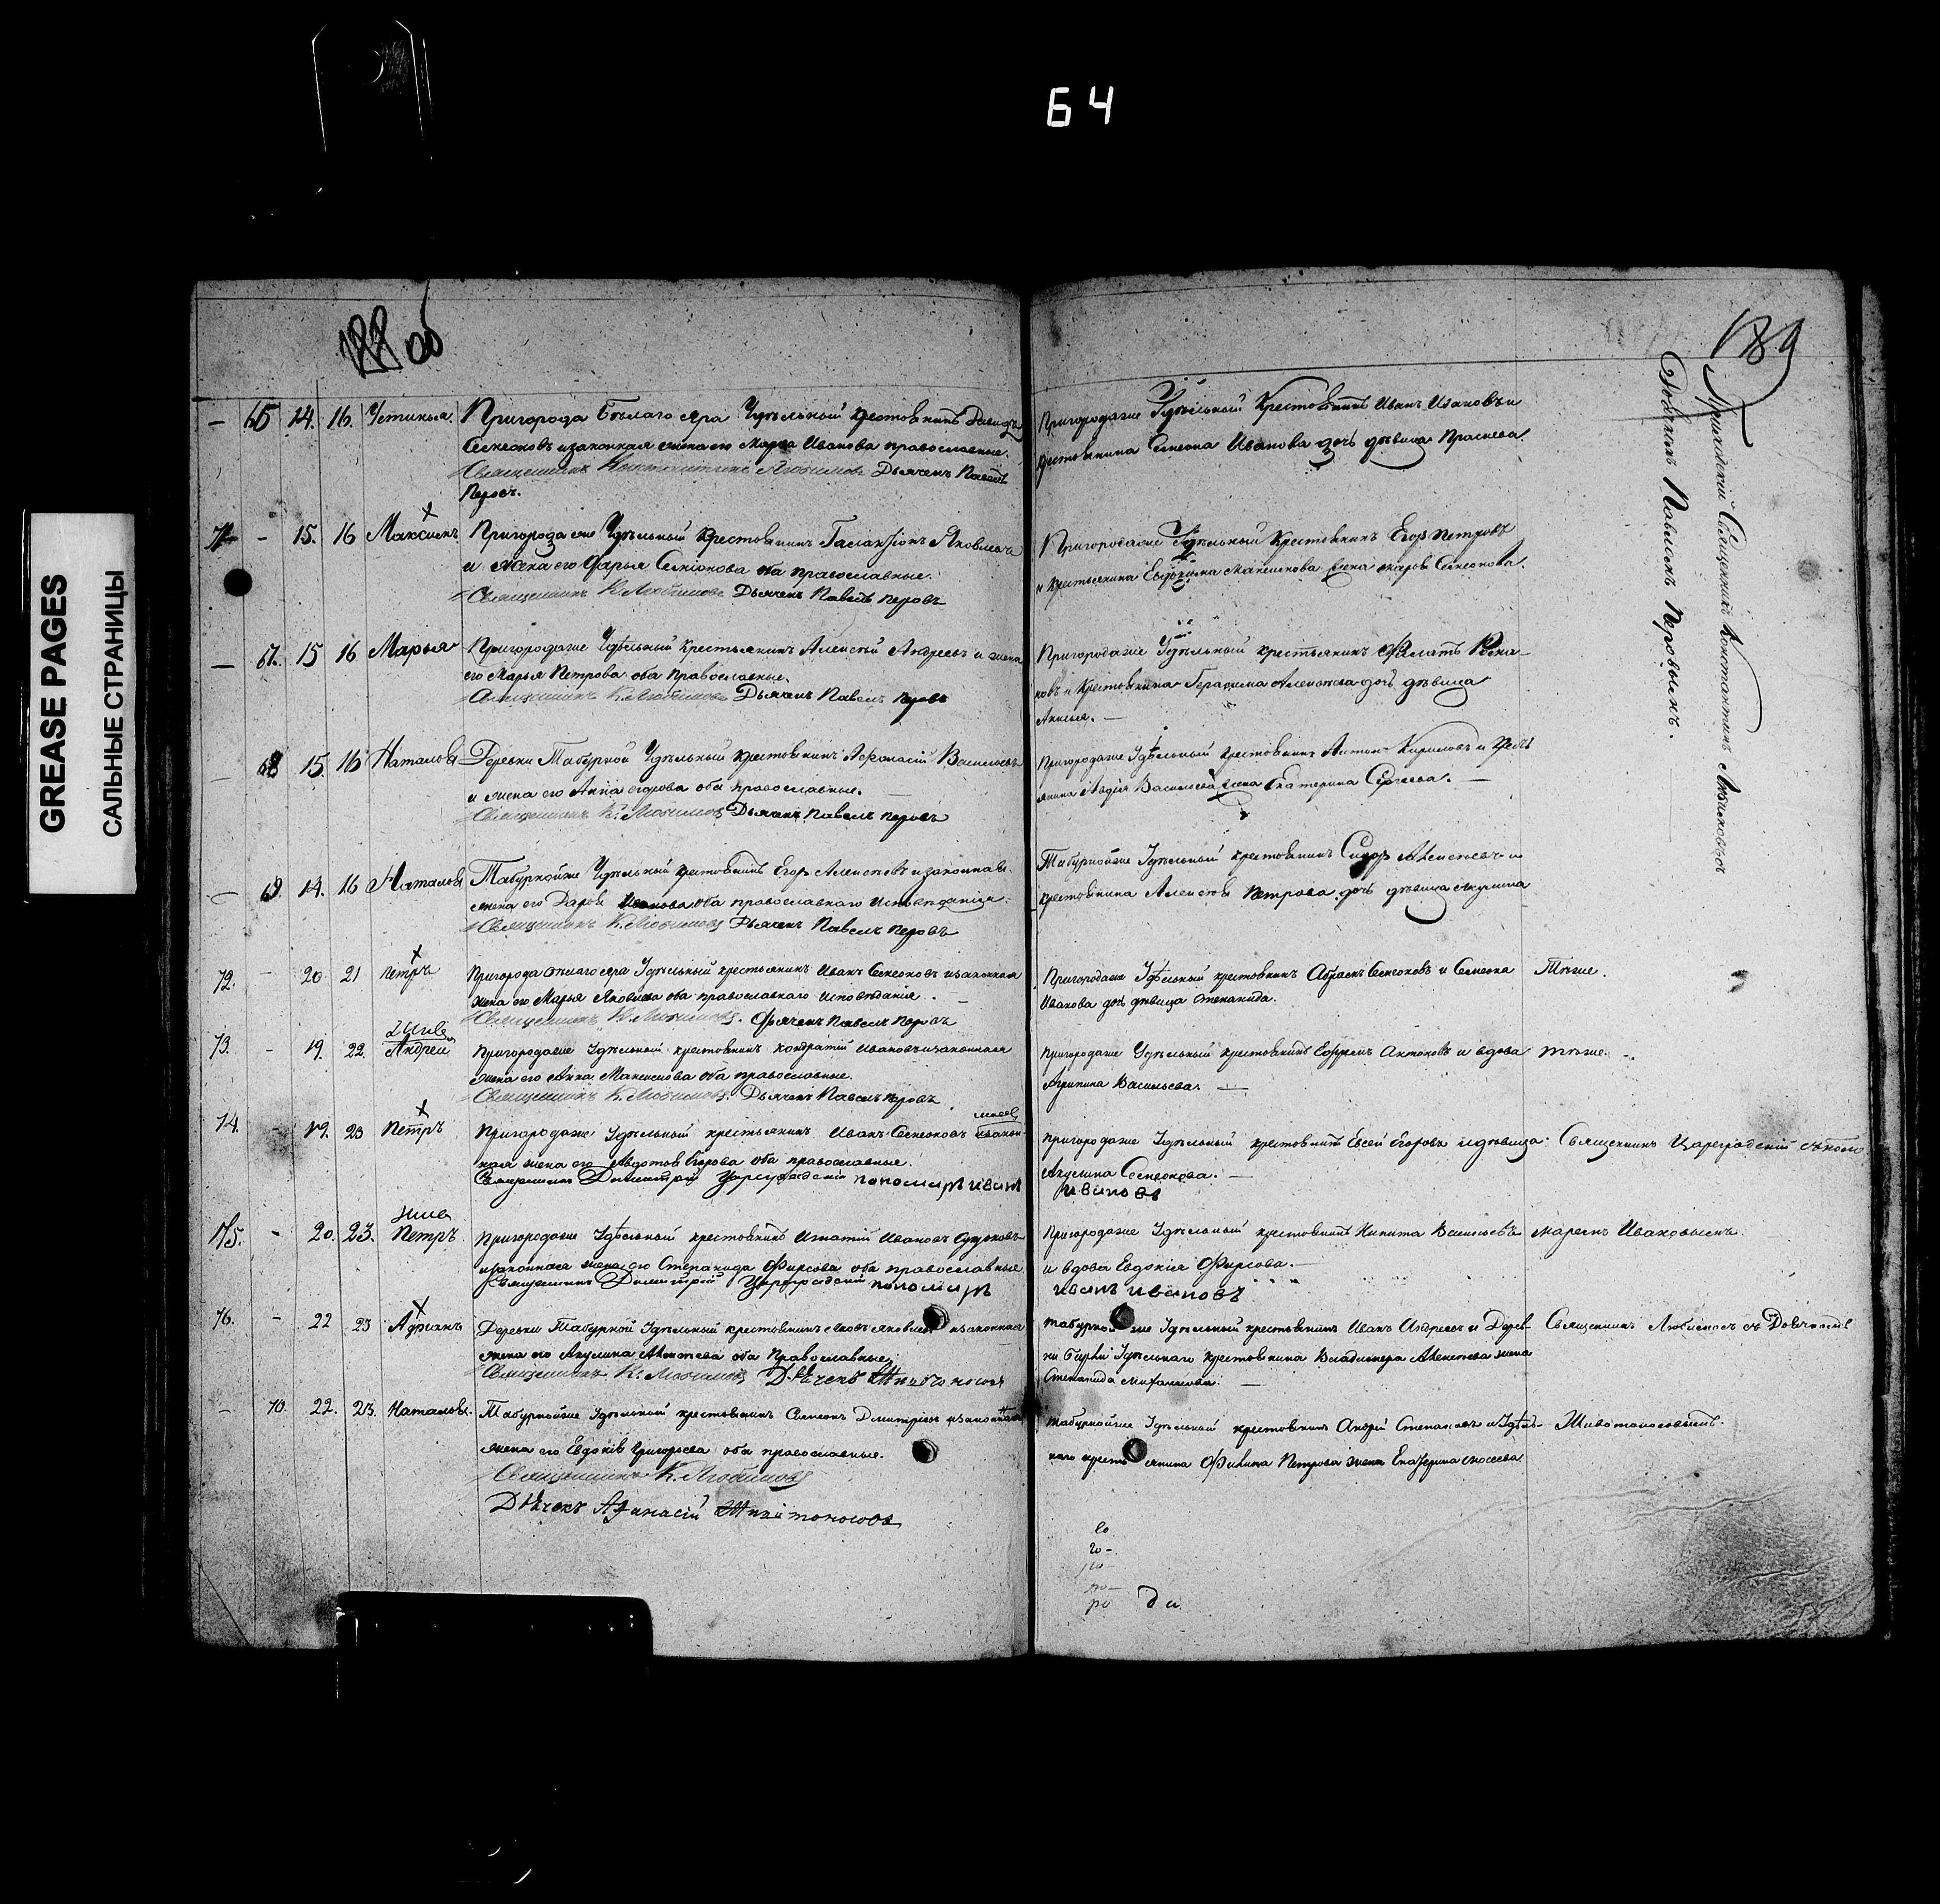 64
GREASE PAGES
САЛЬНЫЕ СТРАНИЦЫ
188 об
189
— 65 14. 16. Устинья. Пригорода Бѣлаго яра Удѣльный крестьянинъ Давидъ
Семеновъ и законная жена его Марѳа Иванова православные.
Священникъ Константинъ Любимовъ Дьячекъ Павелъ
Перовъ.
Пригородаже Удѣльный Крестьянинъ Иванъ Ивановъ и
крестьянина Семена Иванова дочь дѣвица
Приходскій Священникъ Константинъ
Дьячкомъ Павломъ Перовымъ.
71 - 15. 16 Максимъ Пригорода же Удѣльный Крестьянинъ Галактіонъ Яковлевъ
и жена его Дарья Семіонова оба православные.
Священникъ К. Любимовъ Дьячекъ Павелъ Перовъ
Пригородаже Удѣльный Крестьянинъ Егоръ Петровъ
и крестьянина Евдокима Максимова жена Семенова.
— 67. 15 16 Марья Пригородаже Удѣльный Крестьянинъ Алексѣй Андреевъ и жена
его Марья Петрова оба православные.
Священникъ К. Любимовъ Дьячекъ Павелъ Перовъ
Пригородаже Удѣльный крестьянинъ Филатъ
новъ и Крестьянина Герасима Алексѣева дочь дѣвица
Анисья. —
68 15. 16 Наталья Деревни Табурной Удѣльный крестьянинъ Афонасій Васильевъ
и жена его Анна Егорова оба православные. —
Священникъ К. Любимовъ Дьячекъ Павелъ Перовъ
Пригородаже Удѣльный крестьянинъ Антонъ Кириловъ и крестъ
янина Авдѣя Васильева жена Екатерина Сергѣева. —
— 69 14. 16 Наталья Табурнойже Удѣльный крестьянинъ Егоръ Алексѣевъ и законная
жена его Дарья Иванова оба православнаго исповѣданія.
Священникъ К. Любимовъ Дьячекъ Павелъ Перовъ
Табурнойже Удѣльный крестьянинъ Сидоръ Алексѣевъ и
крестьянина Алексѣя Петрова дочь дѣвица Акулина
72. - 20 21 Петръ Пригорода Бѣлаго яра Удѣльный крестьянинъ Иванъ Семеновъ и законная
жена его Марья Яковлева оба православнаго исповѣданія. —
Священникъ К. Любимовъ. Дьячекъ Павелъ Перовъ
Пригородаже Удѣльный крестьянинъ Абрамъ Семеновъ и Семена
Иванова дочь дѣвица Степанида.
Тѣже.
73. - 19. 22. Андрей Пригородаже Удѣльный крестьянинъ Кондратій Ивановъ и законная
жена его Анна Максимова оба православные.
Священникъ К. Любимовъ. Дьячекъ Павелъ Перовъ
Пригородаже Удѣльный крестьянинъ Ефремъ Антоновъ и вдова
Агрипина Васильева. —
Тѣже.
74. - 19. 23 Петръ Пригородаже Удѣльный крестьянинъ Иванъ Семеновъ и закон-
ная жена его Авдотья Егорова оба православные.
Священникъ Димитрій Цареградскій пономарь Иванъ
Ивановъ
Пригородаже Удѣльный крестьянинъ Евсей Егоровъ и дѣвица
Акулина Семенова. —
Священникъ Цареградскій съ поно
175. - 20. 23. Петръ. Пригородаже Удѣльный крестьянинъ Игнатій Ивановъ
и законная жена его Степанида Фирсова оба православные
Священникъ Димитрій Цареградскій пономарь
Иванъ Ивановъ
Пригородаже Удѣльный крестьянинъ Никита Васильевъ
и вдова Евдокія Фирсова. —
маремъ Ивановымъ.
76. - 22 23 Адріанъ Деревни Табурной Удѣльный крестьянинъ Яковъ Яковлевъ и законная
жена его Акулина Алексѣева оба православные,
Священникъ К. Любимовъ Дьячекъ Животоносовъ
Табурнойже Удѣльный крестьянинъ Иванъ Андреевъ и Дерев-
ни Удѣльнаго крестьянина Владимера Алексѣева жена
Степанида —
Священникъ Любимовъ съ Дьячкомъ
- 70. 22. 23. Наталья. Табурнойже Удѣльный крестьянинъ Семенъ Дмитріевъ и законная
жена его Евдокія Григорьева оба православные.
Священникъ К. Любимовъ
Дьячекъ Афанасій Животоносовъ
Табурнойже Удѣльный крестьянинъ Андрей Степановъ и Удѣль-
наго крестьянина Филипа Петрова жена Екатерина Мосеева
Животоносовымъ.
го-
ро
да